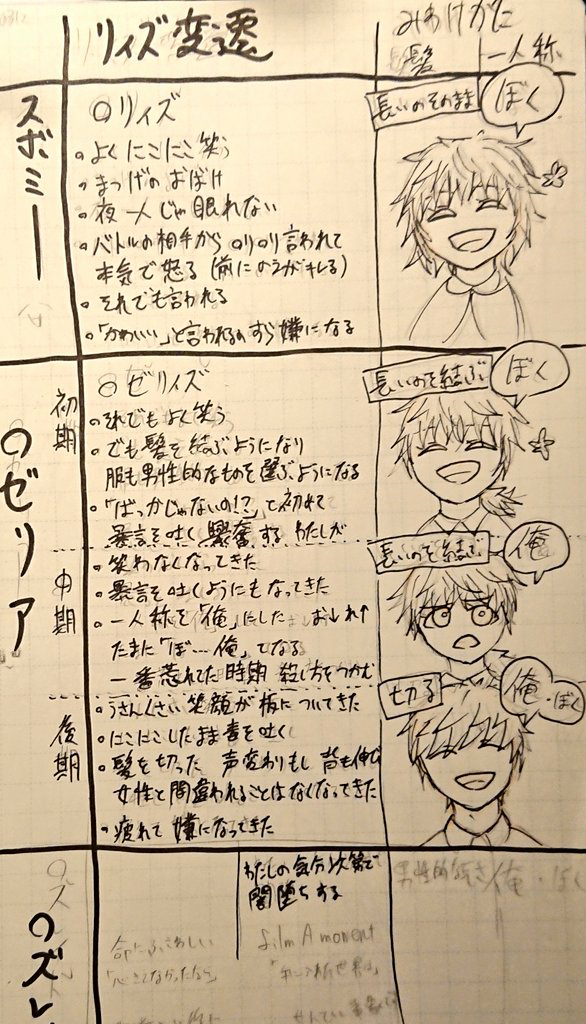 リィズ変遷
みわけかた
髪
一人称
スボミー
○リィズ
・よくにこにこ笑う
・まつげのおばけ
・夜一人じゃ眠れない
・バトルの相手からロリロリ言われて
本気で怒る(前にのえがキレる)
・それでも言われる
・「かわいい」と言われるのすら嫌になる
長いのそのまま
ぼく
ロゼリア
初期
○ゼリィズ
・それでもよく笑う
・でも髪を結ぶようになり
服も男性的なものを選ぶようになる
・「ばっかじゃないの!?」と初めて
暴言を吐く 興奮するわたしが
長いのを結ぶ
ぼく
中期
・笑わなくなってきた
・暴言を吐くようにもなってきた
・一人称を「俺」にした おしゃれ↑
たまに「ぼ…俺」てなる
一番荒れてた時期 殺し方をつかむ
長いのを結ぶ
俺
後期
・うさんくさい笑顔が板についてきた
・にこにこしたまま毒を吐く
・髪を切った 声変わりもし 背も伸び
女性と間違われることはなくなってきた
・疲れて嫌になってきた
切る
俺・ぼく
ロズレ
わたしの気分次第で
闇堕ちする
俺・ぼく
film A moment